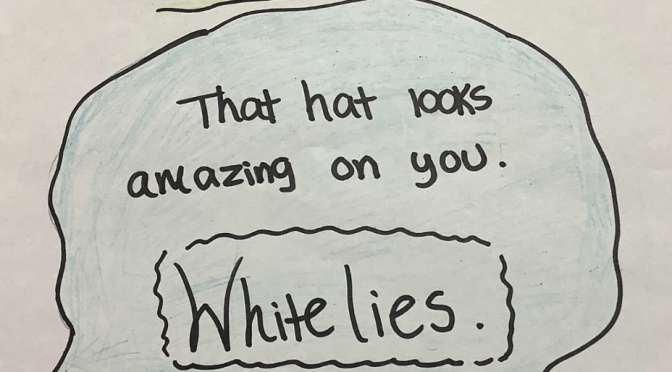 That hat looks
amazing on you.
White lies.